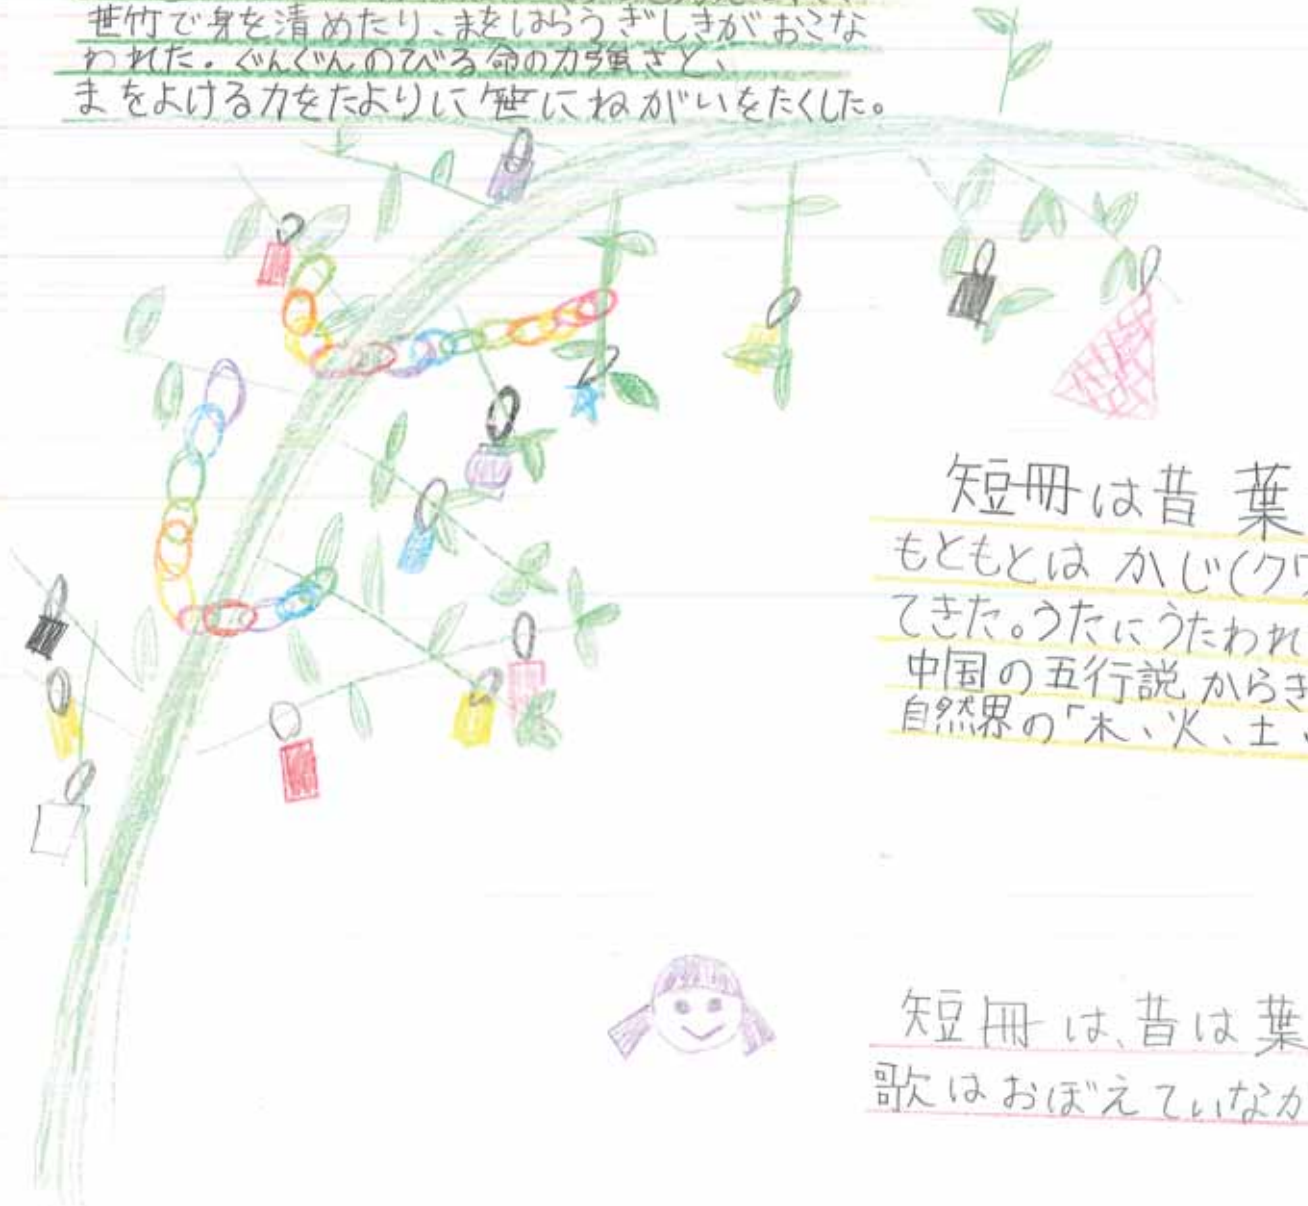 笹竹で身を清めたり、まをはらうぎしきがおこな
われた。ぐんぐんのびる命の力強さと、
まをよける力をたよりに笹にねがいをたくした。
短冊は昔 葉
もともとは かじ(クワ
てきた。うたにうたわれ
中国の五行説からき
自然界の「木、火、土、
短冊は、昔は葉
歌はおぼえていなか